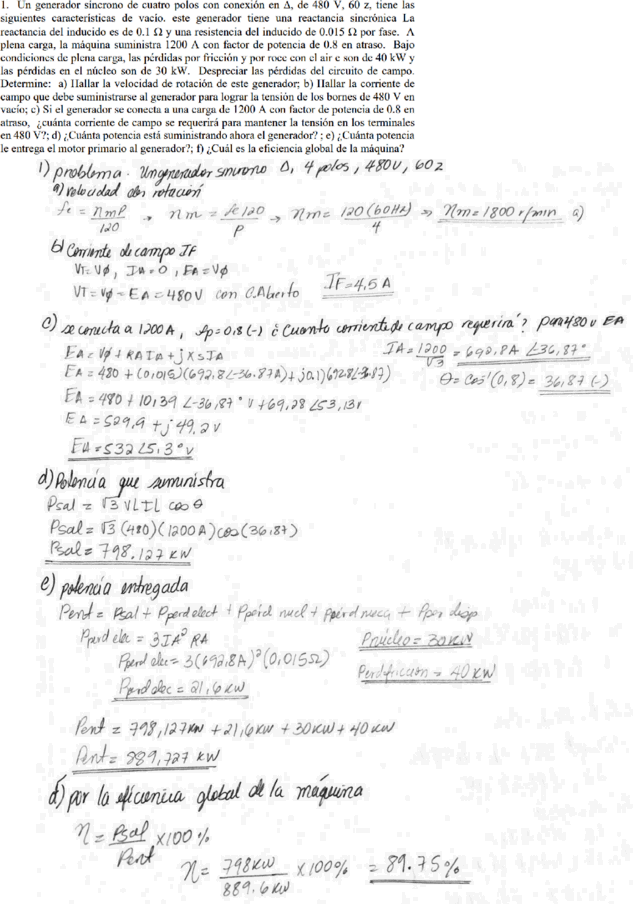 1. Un generador síncrono de cuatro polos con conexión en Δ, de 480 V, 60 z, tiene las
siguientes características de vacío. este generador tiene una reactancia sincrónica La
reactancia del inducido es de 0.1 Ω y una resistencia del inducido de 0.015 Ω por fase. A
plena carga, la máquina suministra 1200 A con factor de potencia de 0.8 en atraso. Bajo
condiciones de plena carga, las pérdidas por fricción y por roce con el air e son de 40 kW y
las pérdidas en el núcleo son de 30 kW. Despreciar las pérdidas del circuito de campo.
Determine: a) Hallar la velocidad de rotación de este generador; b) Hallar la corriente de
campo que debe suministrarse al generador para lograr la tensión de los bornes de 480 V en
vacío; c) Si el generador se conecta a una carga de 1200 A con factor de potencia de 0.8 en
atraso, ¿cuánta corriente de campo se requerirá para mantener la tensión en los terminales
en 480 V?; d) ¿Cuánta potencia está suministrando ahora el generador? ; e) ¿Cuánta potencia
le entrega el motor primario al generador?; f) ¿Cuál es la eficiencia global de la máquina?
1) problema. Un generador síncrono Δ, 4 polos, 480V, 60z
a) velocidad de rotación
fe = nmP/120 → nm = fe120/P → nm = 120(60Hz)/4 ⇒ nm = 1800 r/min a)
b) Corriente de campo IF
VT = Vφ, IA = 0, EA = Vφ
VT = Vφ = EA = 480V con C.Abierto IF = 4,5 A
c) se conecta a 1200A, fp = 0,8 (-) ¿Cuanto corriente de campo requerira? para 480 v EA
EA = Vφ + RAIA + jXsIA IA = 1200/√3 = 692,8A ∠36,87°
EA = 480 + (0,015)(692,8∠-36.87A) + j0,1)(692,8∠-36,87) θ = cos⁻¹(0,8) = 36,87 (-)
EA = 480 + 10,39 ∠-36,87° V + 69,28 ∠53,13v
EA = 529,9 + j 49,2 v
EA = 532 ∠5,3° v
d) Potencia que suministra
Psal = √3 VL IL cos θ
Psal = √3 (480)(1200A) cos (36,87)
Psal = 798.127 kw
e) potencia entregada
Pent = Psal + Pperdelect + Pperd nucl + pperd mecq + Pper disp
Pperd elec = 3IA² RA Pnúcleo = 30KW
Pperd elec = 3(692,8A)²(0,015Ω) Perdfriccion = 40 KW
Pperd elec = 21,6 kw
Pent = 798,127KW + 21,6KW + 30KW + 40 KW
Pent = 889,727 kW
f) por la eficiencia global de la máquina
η = Psal/Pent x100 %
η = 798KW/889.6 KW x 100% = 89.75%